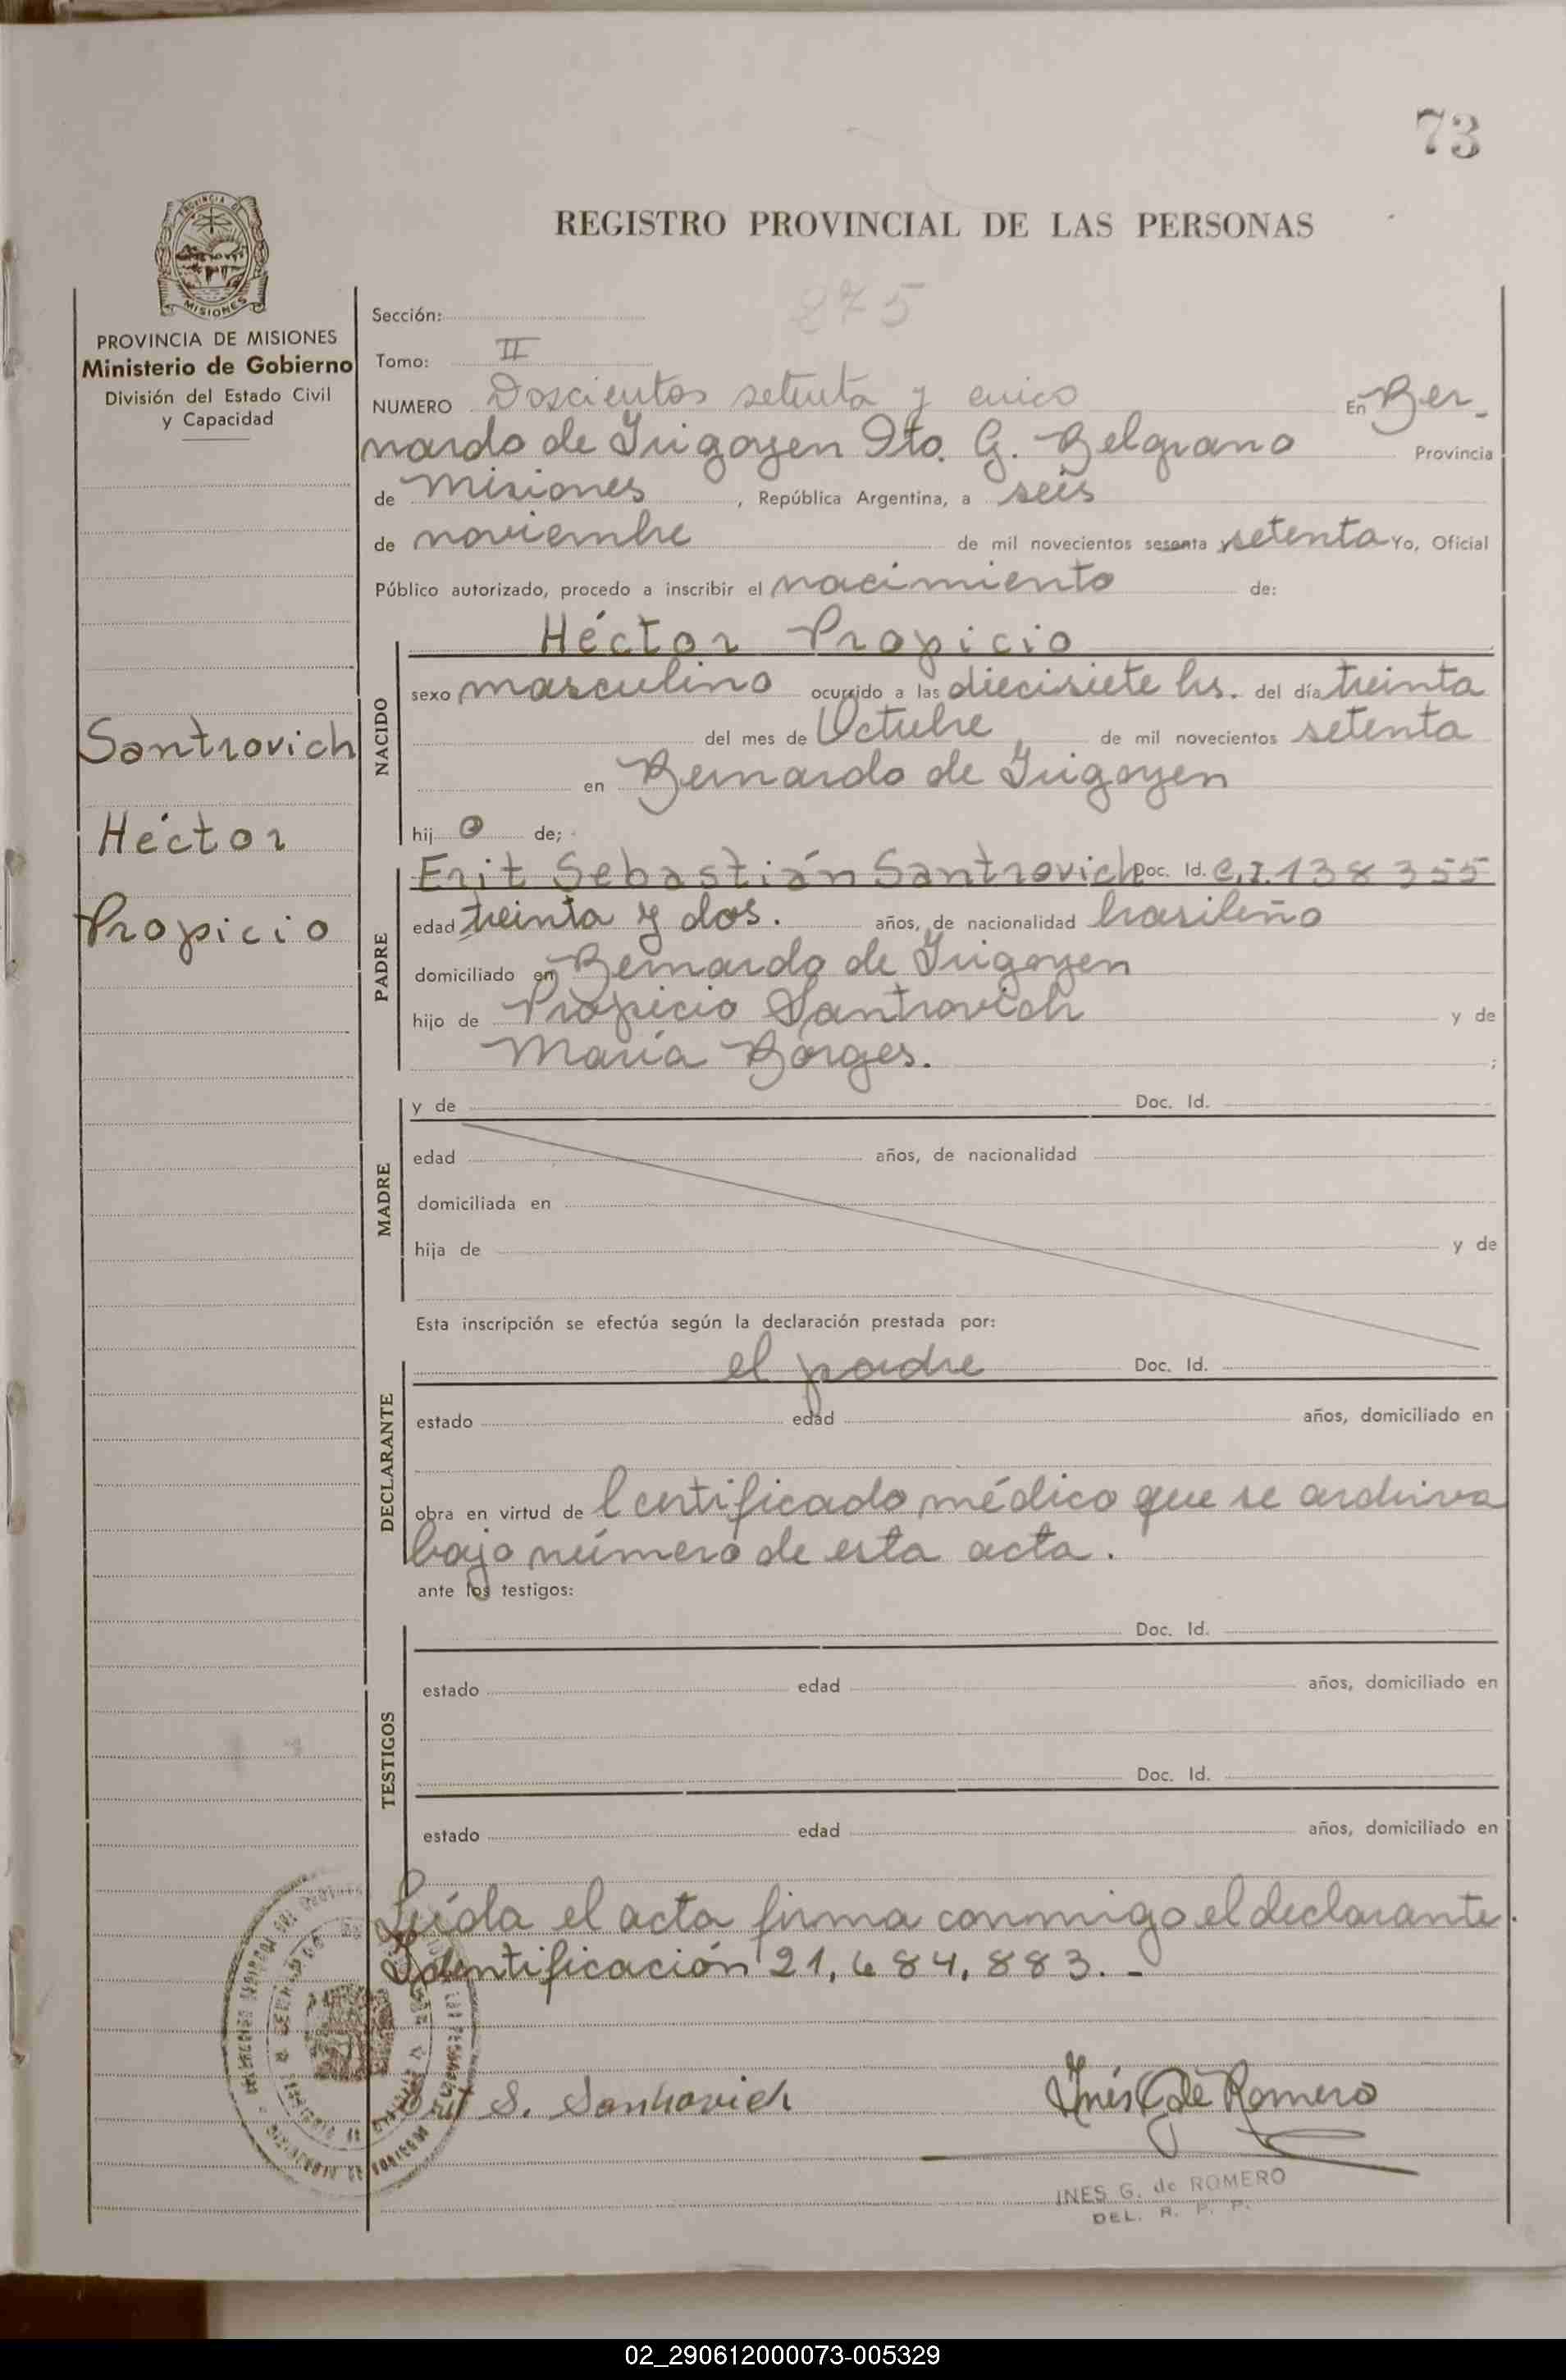 73
REGISTRO PROVINCIAL DE LAS PERSONAS
MISIONES
PROVINCIA DE MISIONES
Ministerio de Gobierno
División del Estado Civil
y Capacidad
Santrovich
Héctor
Propicio
Sección:
875
Tomo: II
NUMERO Doscientos setenta y cinco En Ber-
nardo de Irigoyen Dto. G. Belgrano Provincia
de Misiones, República Argentina, a seis
de noviembre de mil novecientos sesenta setenta Yo, Oficial
Público autorizado, procedo a inscribir el nacimiento de:
NACIDO
Héctor Propicio
sexo masculino ocurrido a las diecisiete hs. del día treinta
del mes de Octubre de mil novecientos setenta
en Bernardo de Irigoyen
hijo de;
PADRE
Erit Sebastián Santrovich Doc. Id. C.I. 138355
edad treinta y dos. años, de nacionalidad brasileño
domiciliado en Bernardo de Irigoyen
hijo de Propicio Santrovich y de
María Borges. ;
MADRE
y de Doc. Id.
edad años, de nacionalidad
domiciliada en
hija de y de
Esta inscripción se efectúa según la declaración prestada por:
DECLARANTE
el padre Doc. Id.
estado edad años, domiciliado en
obra en virtud de l certificado médico que se archiva
bajo número de esta acta.
ante los testigos:
TESTIGOS
Doc. Id.
estado edad años, domiciliado en
Doc. Id.
estado edad años, domiciliado en
Leída el acta firma conmigo el declarante.
Identificación 21,684,883.-
Erit S. Santrovich Inés G de Romero
INES G. de ROMERO
DEL. R. P. P.
02_290612000073-005329